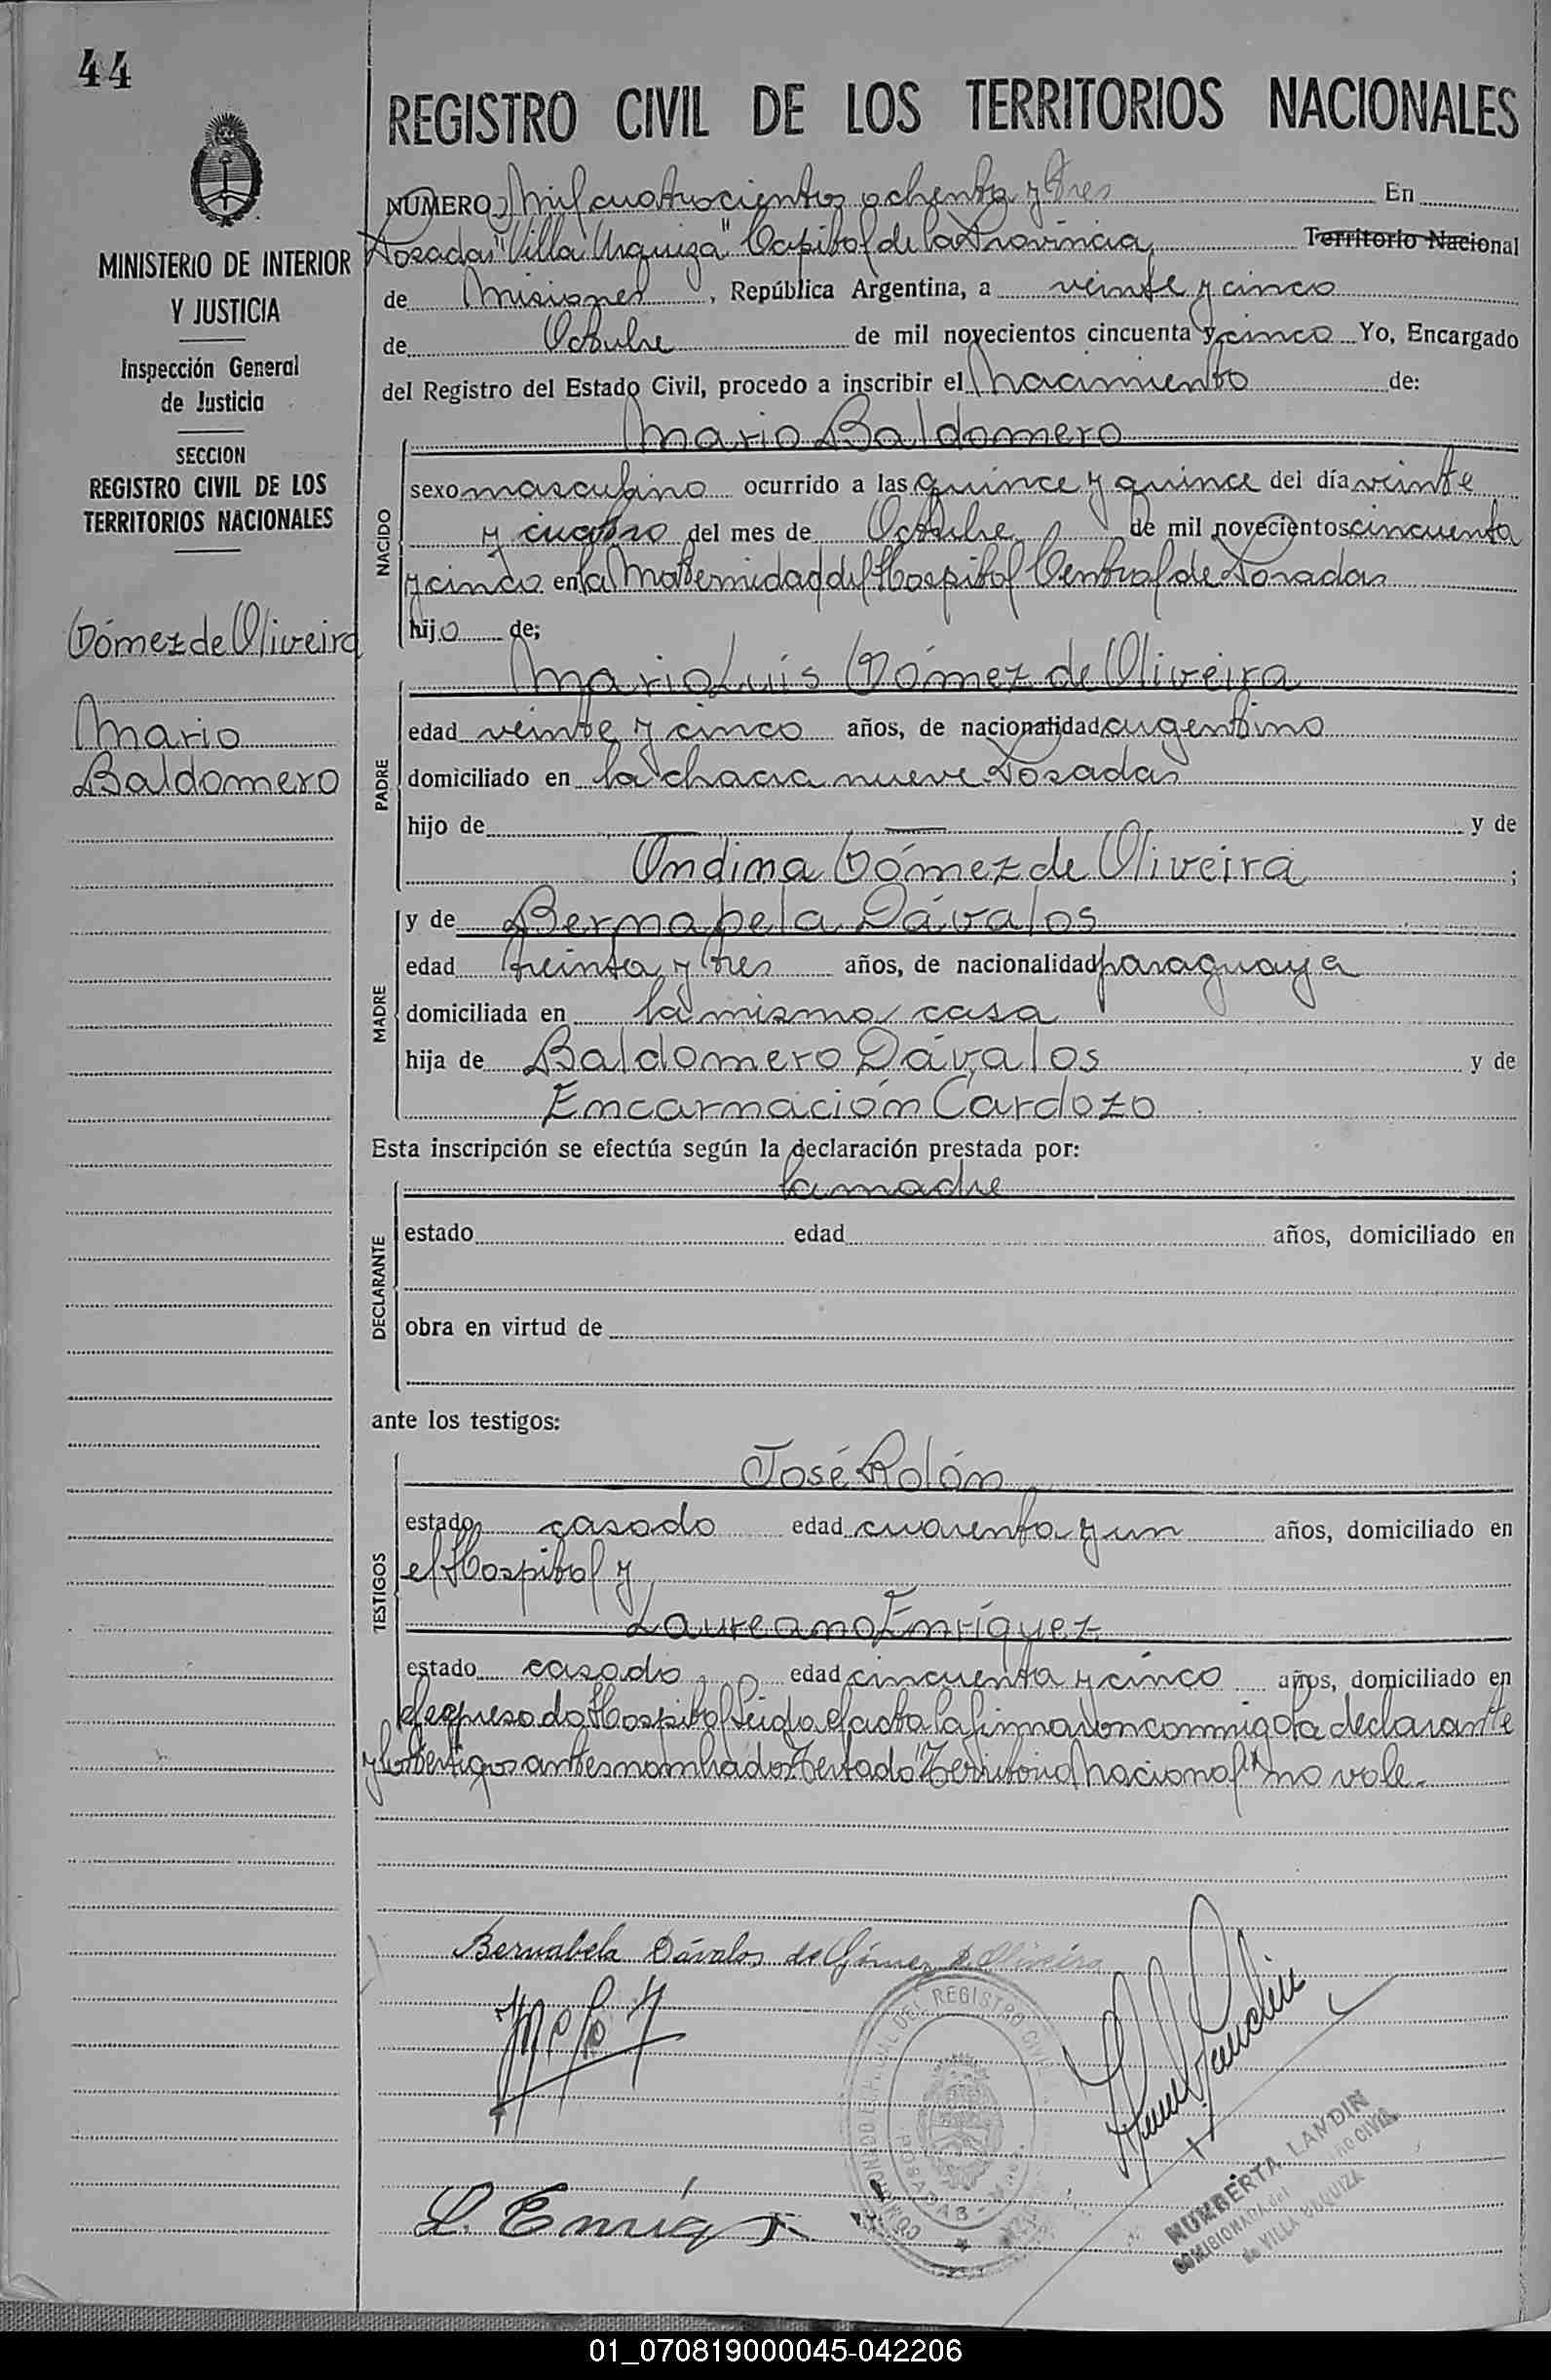 44
REGISTRO CIVIL DE LOS TERRITORIOS NACIONALES
MINISTERIO DE INTERIOR
Y JUSTICIA
Inspección General
de Justicia
SECCION
REGISTRO CIVIL DE LOS
TERRITORIOS NACIONALES
Gómez de Oliveira
Mario
Baldomero
NUMERO Mil cuatrocientos ochenta y tres En
Posadas "Villa Urquiza" Capital de la Provincia Territorio Nacional
de Misiones, República Argentina, a veinte y cinco
de Octubre de mil novecientos cincuenta y cinco Yo, Encargado
del Registro del Estado Civil, procedo a inscribir el nacimiento de:
NACIDO
Mario Baldomero
sexo masculino ocurrido a las quince y quince del día veinte
y cuatro del mes de Octubre de mil novecientos cincuenta
y cinco en la Maternidad del Hospital Central de Posadas
hijo de;
PADRE
Mario Luis Gómez de Oliveira
edad veinte y cinco años, de nacionalidad argentino
domiciliado en la chacra nueve Posadas
hijo de — — y de
Ondina Gómez de Oliveira;
MADRE
y de Bernabela Dávalos
edad treinta y tres años, de nacionalidad paraguaya
domiciliada en la misma casa
hija de Baldomero Dávalos y de
Encarnación Cardozo
Esta inscripción se efectúa según la declaración prestada por:
DECLARANTE
la madre
estado edad años, domiciliado en
obra en virtud de
ante los testigos:
TESTIGOS
José Rolón
estado casado edad cuarenta y un años, domiciliado en
el Hospital y
Laureano Enríquez
estado casado edad cincuenta y cinco años, domiciliado en
el Hospital Leida el acta la firmaron conmigo la declarante
y los testigos antes nombrados Testado "Territorio Nacional" no vale.
Bernabela Dávalos de Gómez de Oliveira
L. Enríq
DEL REGISTRO CIVIL
POSADAS
HUMBERTA LANDIN
COMISIONADA del REGISTRO CIVIL
de VILLA URQUIZA
01_070819000045-042206